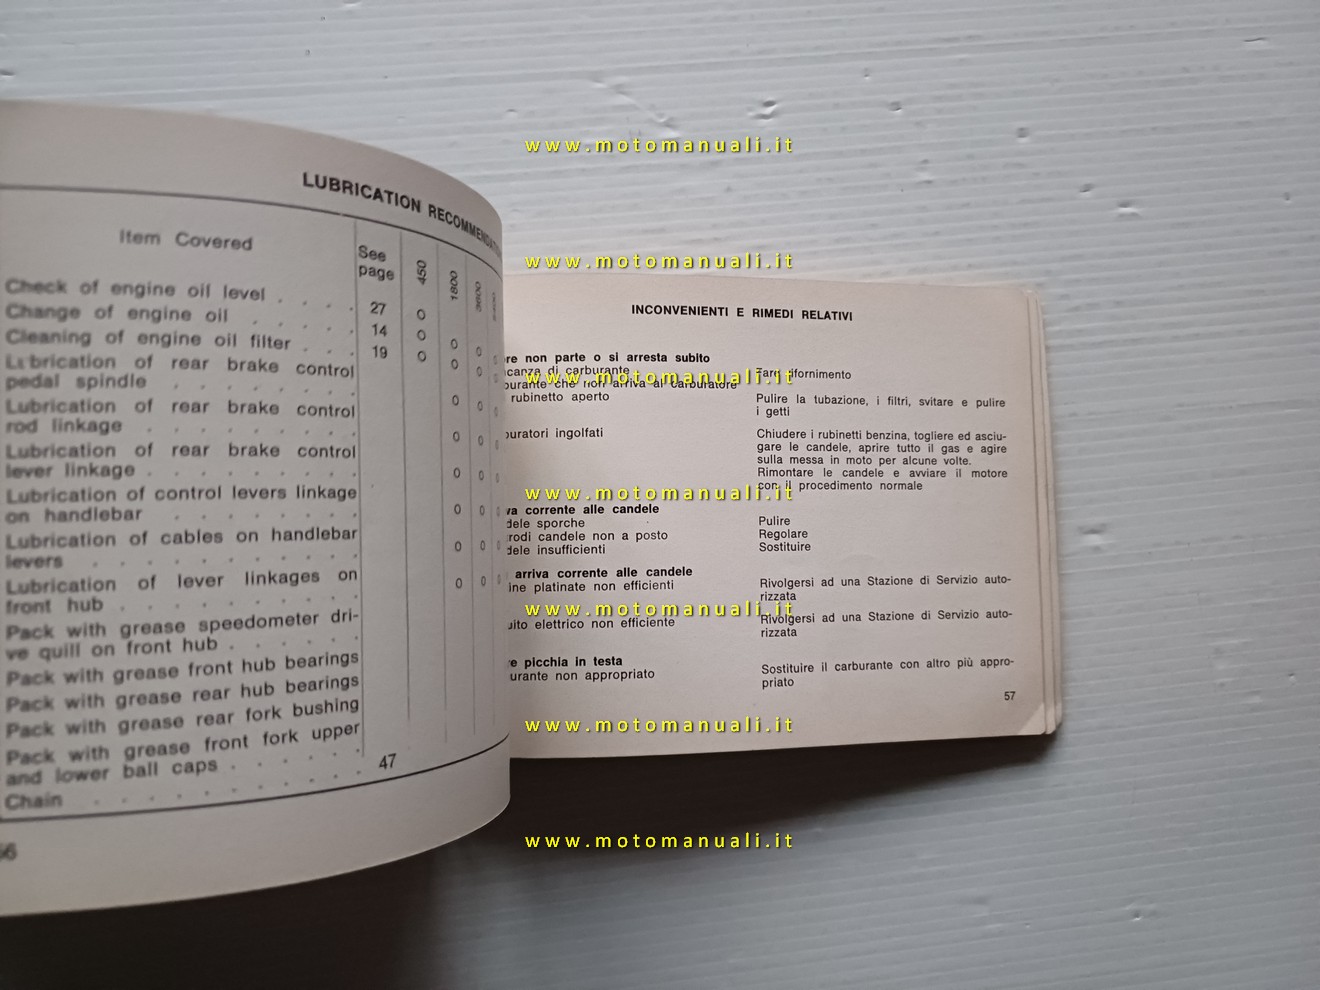 LUBRICATION RECOMMENDATI
Item Covered
See
page
450
1800
3600
Check of engine oil level . . . . 27
Change of engine oil . . . . . 14
Cleaning of engine oil filter . . . 19
Lubrication of rear brake control
pedal spindle . . . . . . .
Lubrication of rear brake control
rod linkage . . . . . . . .
Lubrication of rear brake control
lever linkage . . . . . . . .
Lubrication of control levers linkage
on handlebar . . . . . . .
Lubrication of cables on handlebar
levers . . . . . . . . .
Lubrication of lever linkages on
front hub . . . . . . . . .
Pack with grease speedometer dri-
ve quill on front hub . . . . .
Pack with grease front hub bearings
Pack with grease rear hub bearings
Pack with grease rear fork bushing
Pack with grease front fork upper
and lower ball caps . . . . . .
Chain . . . . . . . . . . 47
56
INCONVENIENTI E RIMEDI RELATIVI
re non parte o si arresta subito
canza di carburante
Fare rifornimento
burante che non arriva al carburatore
rubinetto aperto
Pulire la tubazione, i filtri, svitare e pulire
i getti
buratori ingolfati
Chiudere i rubinetti benzina, togliere ed asciu-
gare le candele, aprire tutto il gas e agire
sulla messa in moto per alcune volte.
Rimontare le candele e avviare il motore
con il procedimento normale
va corrente alle candele
dele sporche
Pulire
rodi candele non a posto
Regolare
dele insufficienti
Sostituire
arriva corrente alle candele
ine platinate non efficienti
Rivolgersi ad una Stazione di Servizio auto-
rizzata
uito elettrico non efficiente
Rivolgersi ad una Stazione di Servizio auto-
rizzata
e picchia in testa
urante non appropriato
Sostituire il carburante con altro più appro-
priato
57
www.motomanuali.it
www.motomanuali.it
www.motomanuali.it
www.motomanuali.it
www.motomanuali.it
www.motomanuali.it
www.motomanuali.it